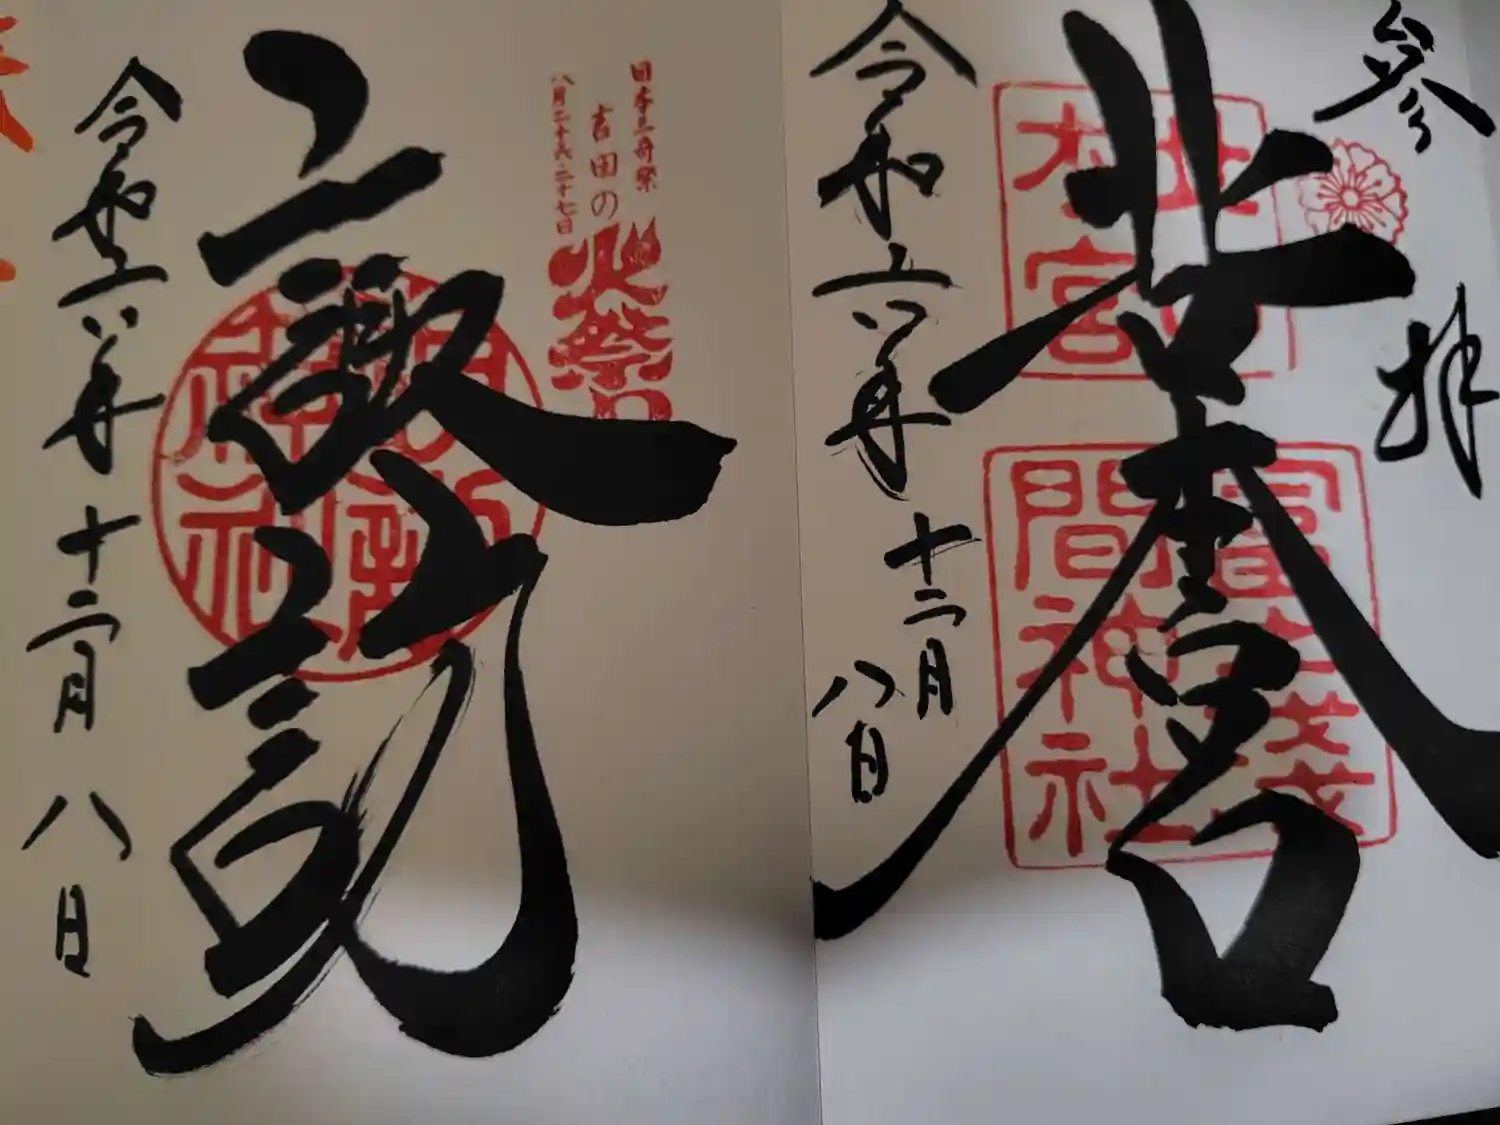 參拜
北口本宮
北口
本宮
冨士淺
間神社
令和六年
十二月
八日
日本三奇祭
吉田の火祭り
八月二十六・二十七日
諏訪
諏訪
神社
令和六年十二月八日